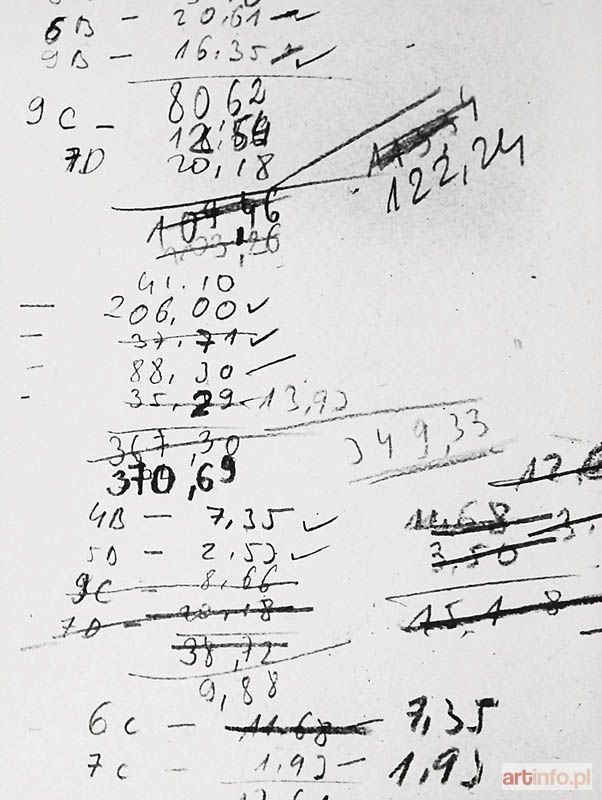 6B - 20,61
9B - 16,35
80,62
9C -
7D 20,18
122,24
109,46
103,26
41,10
206,00
37,71
88,30
35,29 13,93
367,30 349,33
370,69
4B - 7,35 11,68
5D - 2,53 3,50
9C - 8,66
7D - 20,18 15,18
38,72
9,88
6C - 11,68 7,35
7C - 1,93 - 1,93
artinfo.pl